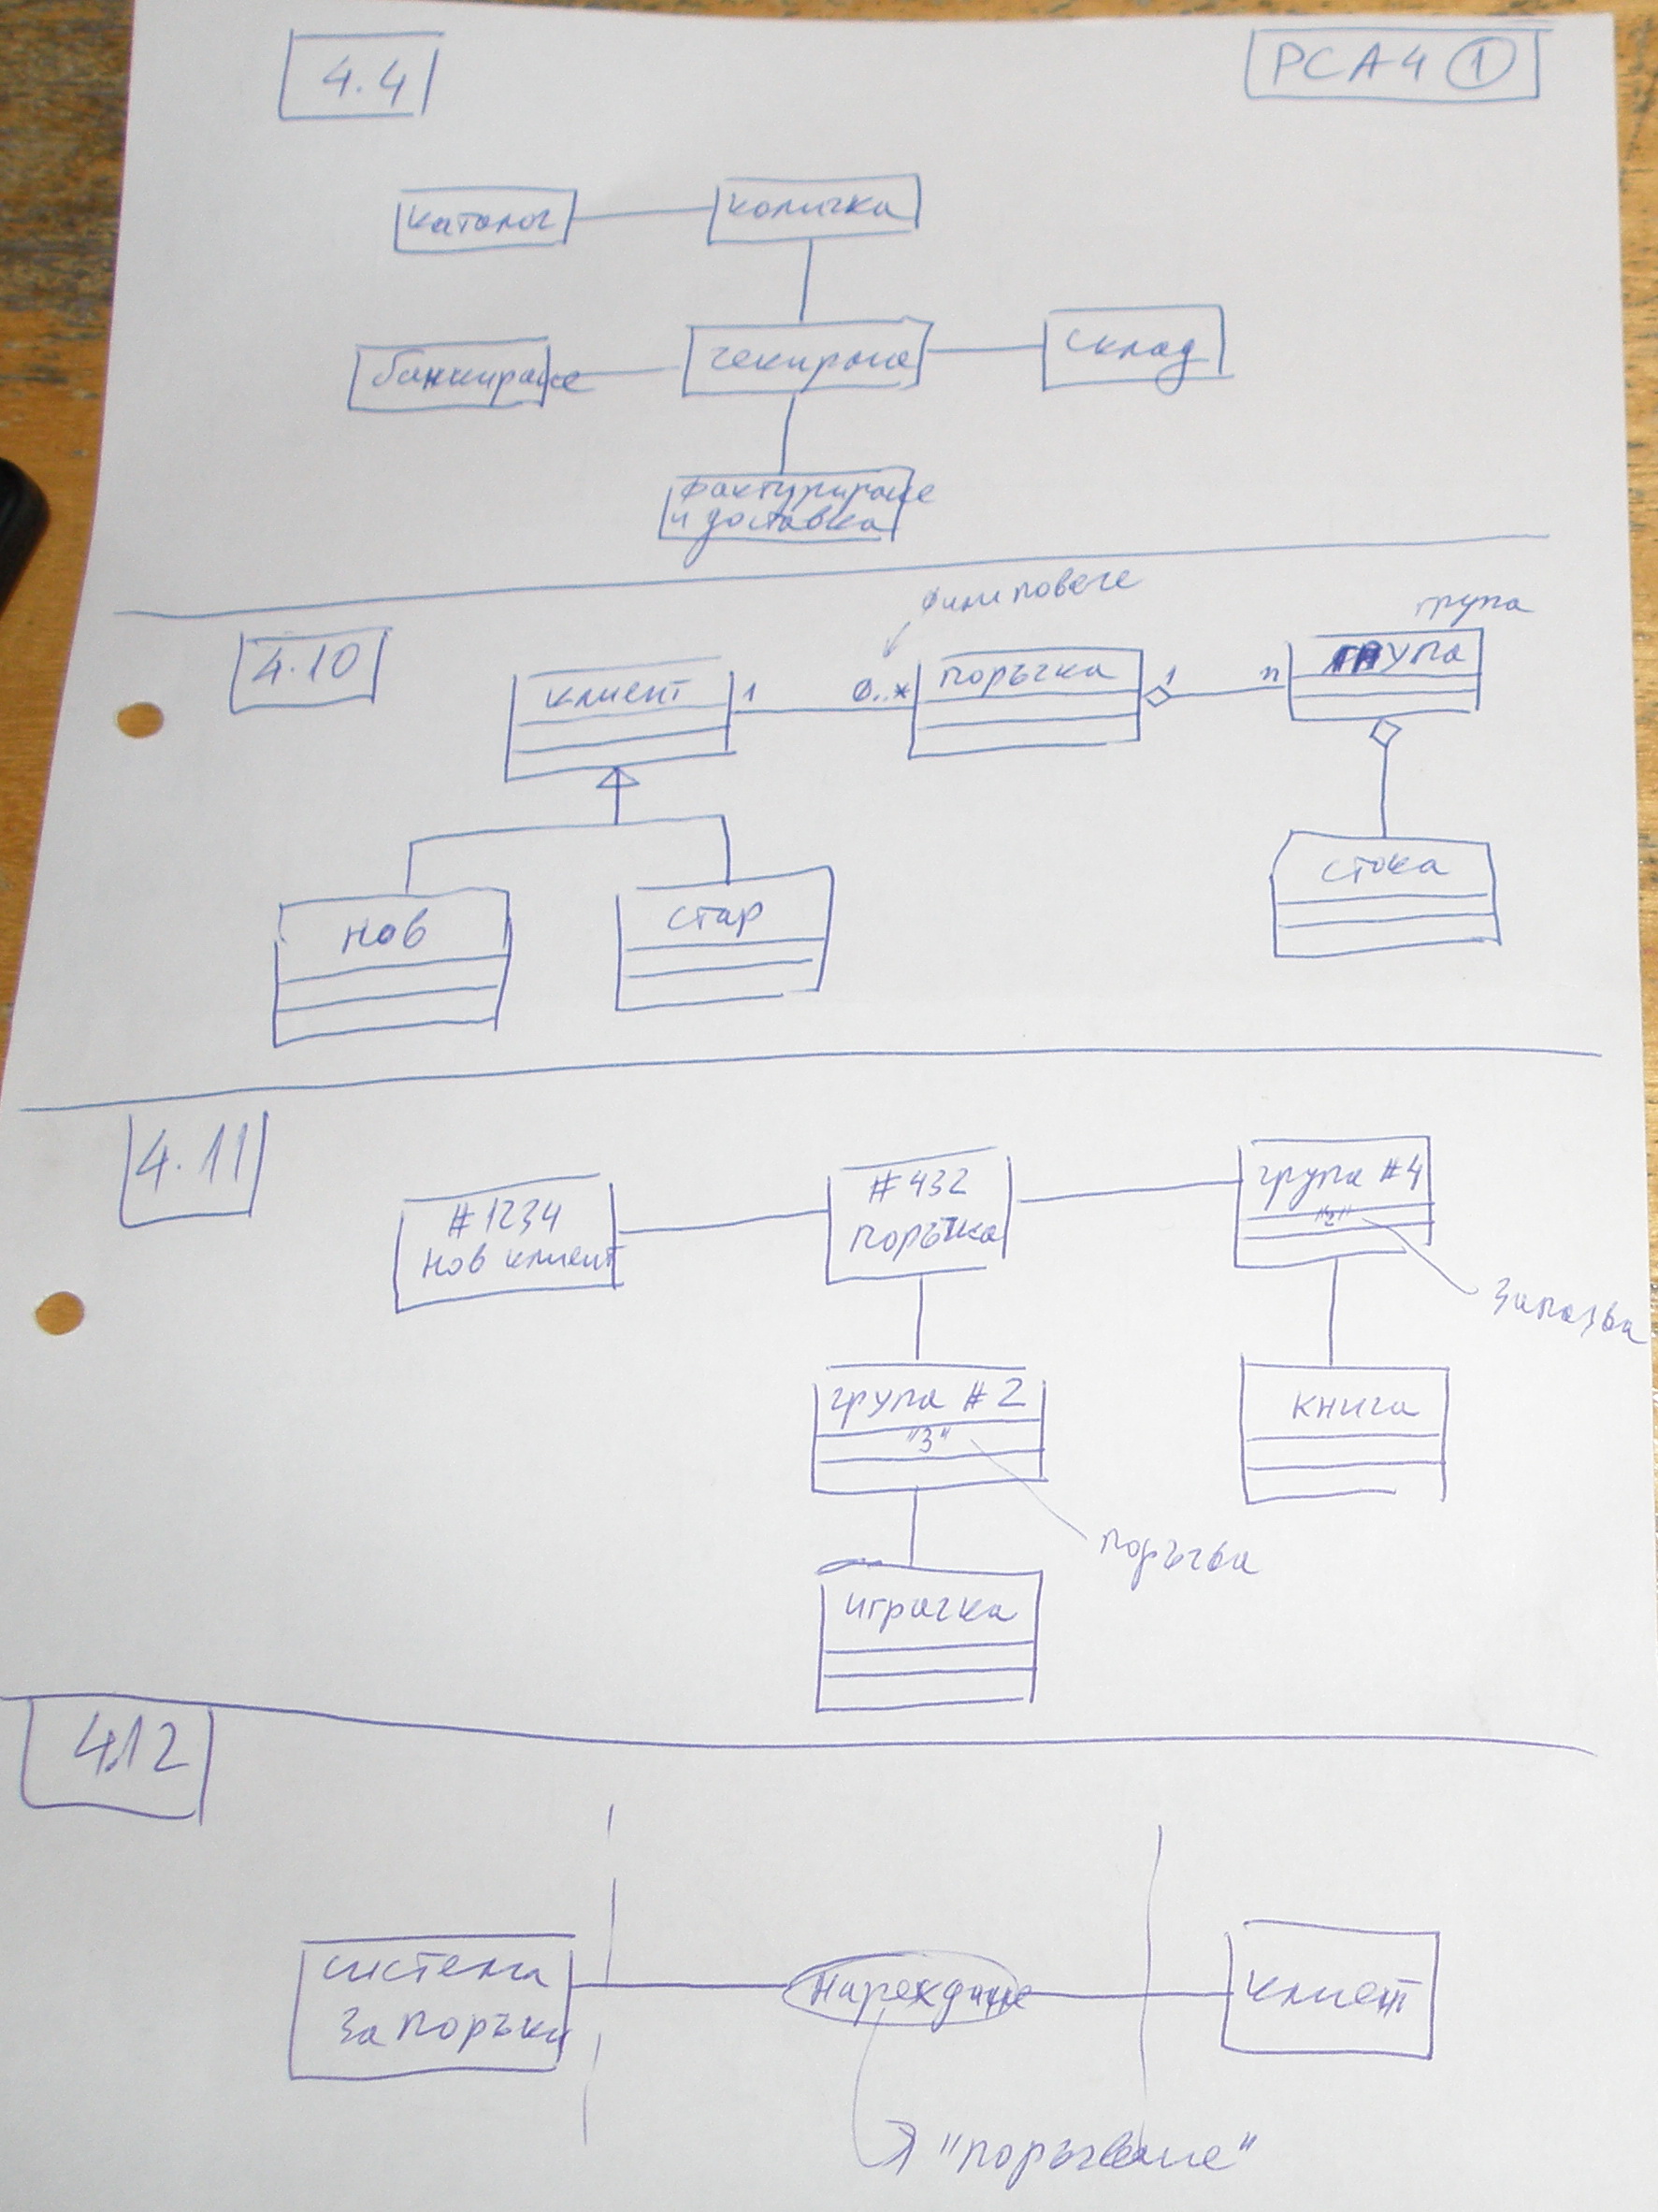 4.4
РСА4 ①
каталог
количка
банкиране
чекиране
склад
фактуриране
и доставка
4.10
0 или повече
група
клиент
1
0..*
поръчка
1
n
група
нов
стар
стока
4.11
#1234
нов клиент
#432
поръчка
група #4
"2"
запазва
група #2
"3"
книга
поръчва
играчка
4.12
система
за поръчки
Нареждане
клиент
"поръчване"